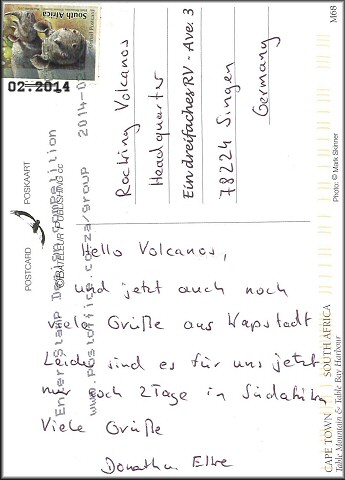 South Africa
02.2014
Rocking Volcanos
Headquarter
Ein dreifaches RV - Ave. 3
78224 Singen
Germany
M68
Photo: © Mark Skinner
POSKAART
POSTCARD
© BATELEUR PUBLISHING cc
Enter Stamp Design Competition
www.postoffice.co.za/group 2014-0
Hello Volcanos,
und jetzt auch noch
viele Grüße aus Kapstadt
Leider sind es für uns jetzt
nur noch 2 Tage in Südafrika
Viele Grüße
CAPE TOWN SOUTH AFRICA
Table Mountain & Table Bay Harbour